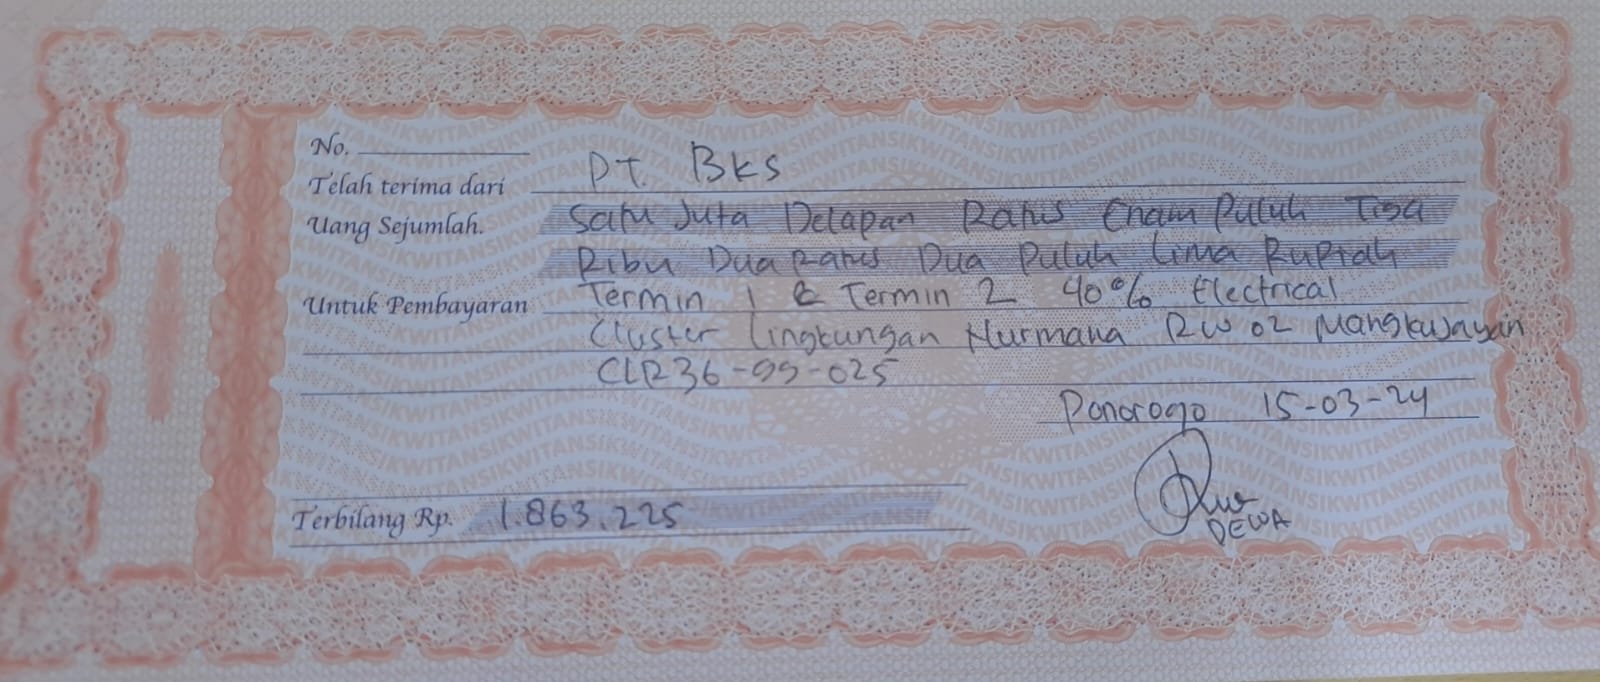 No.
Telah terima dari PT. BKS
Uang Sejumlah. Satu Juta Delapan Ratus Enam Puluh Tiga
Ribu Dua Ratus Dua Puluh Lima Rupiah
Untuk Pembayaran Termin 1 & Termin 2 40% Electrical
Cluster Lingkungan Nurmana RW 02 Mangkujayan
CLR36-99-025
Ponorogo 15-03-24
Terbilang Rp. 1.863.225
DEWA